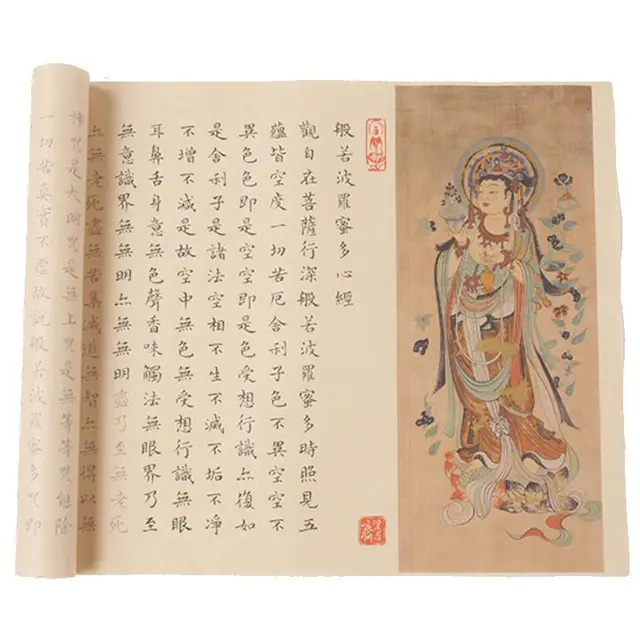 般若波羅蜜多心經
觀自在菩薩行深般若波羅蜜多時照見五
蘊皆空度一切苦厄舍利子色不異空空不
異色色即是空空即是色受想行識亦復如
是舍利子是諸法空相不生不滅不垢不淨
不增不減是故空中無色無受想行識無眼
耳鼻舌身意無色聲香味觸法無眼界乃至
無意識界無無明亦無無明盡乃至無老死
亦無老死盡無苦集滅道無智亦無得以無
神咒是大明咒是無上咒是無等等咒能除
一切苦真實不虛故說般若波羅蜜多咒即